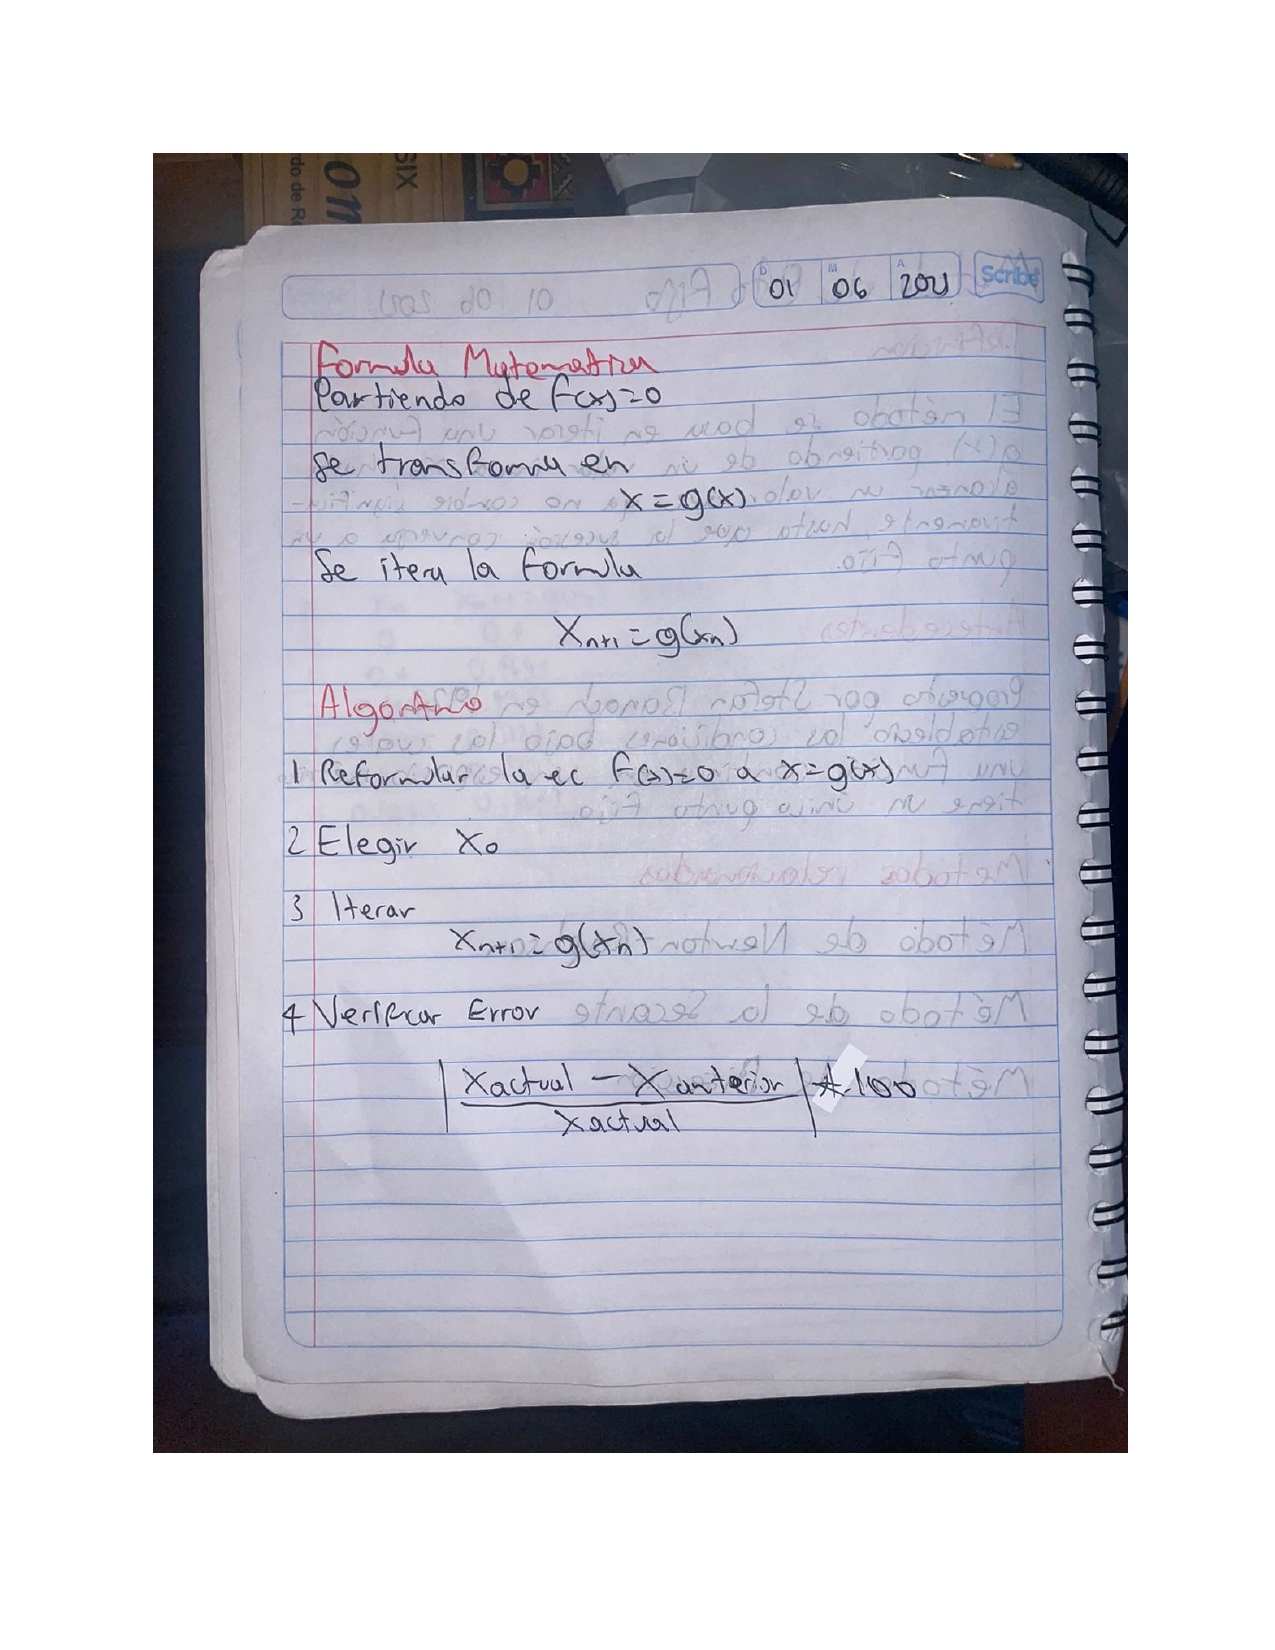 SIX
om
do de R
D 01 M 06 A 2021 Scribe
Formula Matematica
Partiendo de f(x)=0
Se transforma en
x = g(x)
Se itera la formula
Xn+1 = g(xn)
Algoritmo
1 Reformular la ec f(x)=0 a x=g(x)
2 Elegir X0
3 Iterar
Xn+1 = g(xn)
4 Verificar Error
| Xactual - Xanterior | * 100
Xactual